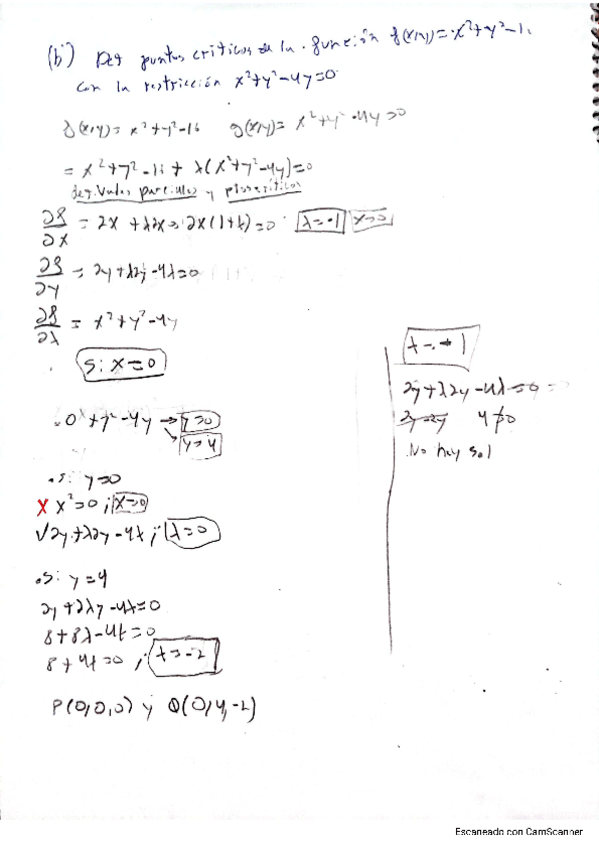 (b) Det puntos críticos de la función f(x,y)= x²+y²-1
con la restricción x²+y²-4y=0
f(x,y)= x²+y²-16 g(x,y)= x²+y²-4y=0
= x²+y²-16+λ(x²+y²-4y)=0
derivadas parciales y ptos críticos
∂f/∂x = 2x+λ2x=0; 2x(1+λ)=0 λ=-1 x=0
∂f/∂y = 2y+λ2y-4λ=0
∂f/∂λ = x²+y²-4y
Si x=0
0²+y²-4y → y=0
→ y=4
• Si y=0
X x²=0; x=0
√ 2y+λ2y-4λ; λ=0
• Si y=4
2y+2λy-4λ=0
8+8λ-4λ=0
8+4λ=0; λ=-2
P(0,0,0) y Q(0,4,-2)
λ=-1
2y+λ2y-4λ=0
2y-2y 4≠0
No hay sol
Escaneado con CamScanner